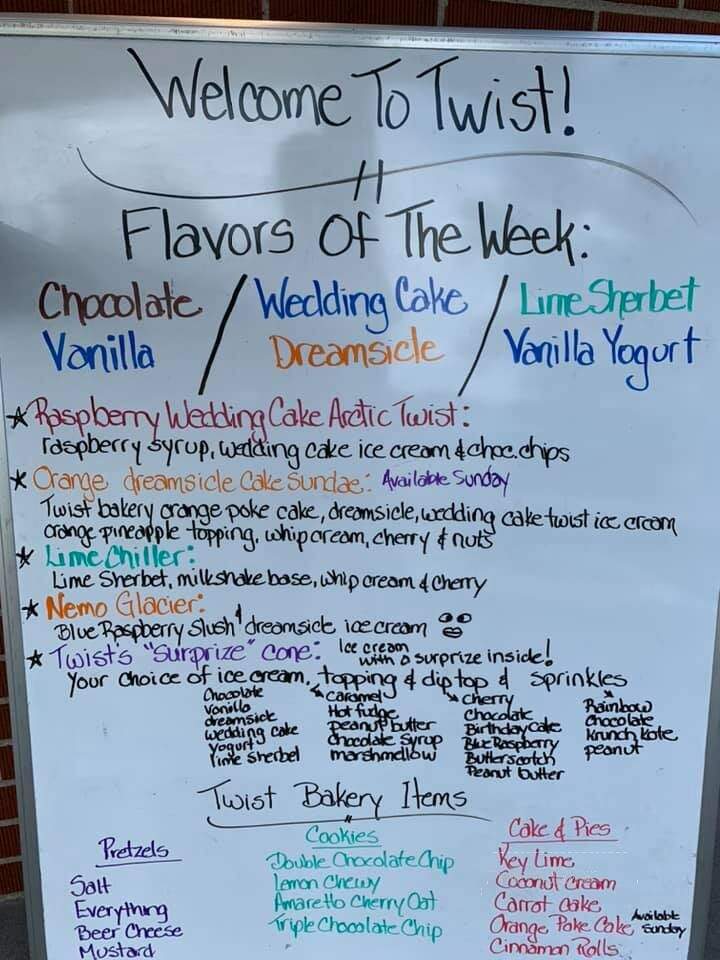 Welcome To Twist!
Flavors Of The Week:
Chocolate / Wedding Cake / Lime Sherbet
Vanilla Dreamsicle Vanilla Yogurt
★ Raspberry Wedding Cake Arctic Twist:
raspberry syrup, wedding cake ice cream & choc. chips
★ Orange dreamsicle Cake Sundae: Available Sunday
Twist bakery orange poke cake, dreamsicle, wedding cake twist ice cream
orange pineapple topping, whip cream, cherry & nuts
★ Lime Chiller:
Lime Sherbet, milkshake base, whip cream & cherry
★ Nemo Glacier:
Blue Raspberry Slush & dreamsicle ice cream
★ Twist's "Surprize" Cone: Ice cream with a surprize inside!
Your choice of ice cream, topping & dip top & sprinkles
Chocolate
Vanilla
dreamsicle
wedding cake
Yogurt
lime sherbet
Caramel
Hot fudge
Peanut butter
Chocolate Syrup
marshmellow
Cherry
Chocolate
Birthday Cake
Blue Raspberry
Butterscotch
Peanut butter
Rainbow
Chocolate
Krunch Kote
peanut
Twist Bakery Items
Pretzels
Salt
Everything
Beer Cheese
Mustard
Cookies
Double Chocolate Chip
Lemon Chewy
Amaretto Cherry Oat
Triple Chocolate Chip
Cake & Pies
Key Lime
Coconut Cream
Carrot Cake
Orange Poke Cake Available Sunday
Cinnamon Rolls